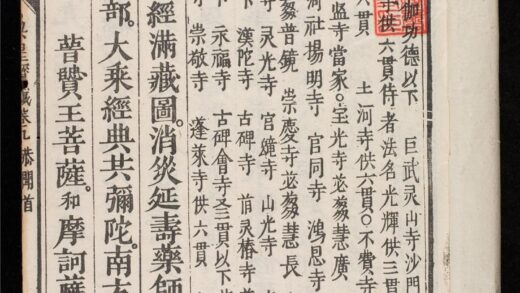 伽功德以下　巨武灵山寺沙門
供六貫侍者法名光輝供三貫
六貫　土河寺供六貫○不費寺
監寺當家○宝光寺苾蒭慧廣
河社塲明寺　官同寺　鴻恩寺
苾蒭普鏡　崇慶寺苾蒭慧長
寺　灵光寺　官鏡寺　山光寺
寺　漢陀寺　古碑寺　灵椿寺
寺　永福寺　古碑會寺圣三貫以下
寺　崇敬寺　蓬萊寺供六貫
經滿藏圖。消災延壽藥師
部。大乘經典共彌陀。南
菩贊王菩薩。和摩訶薩
卷九　恭開首